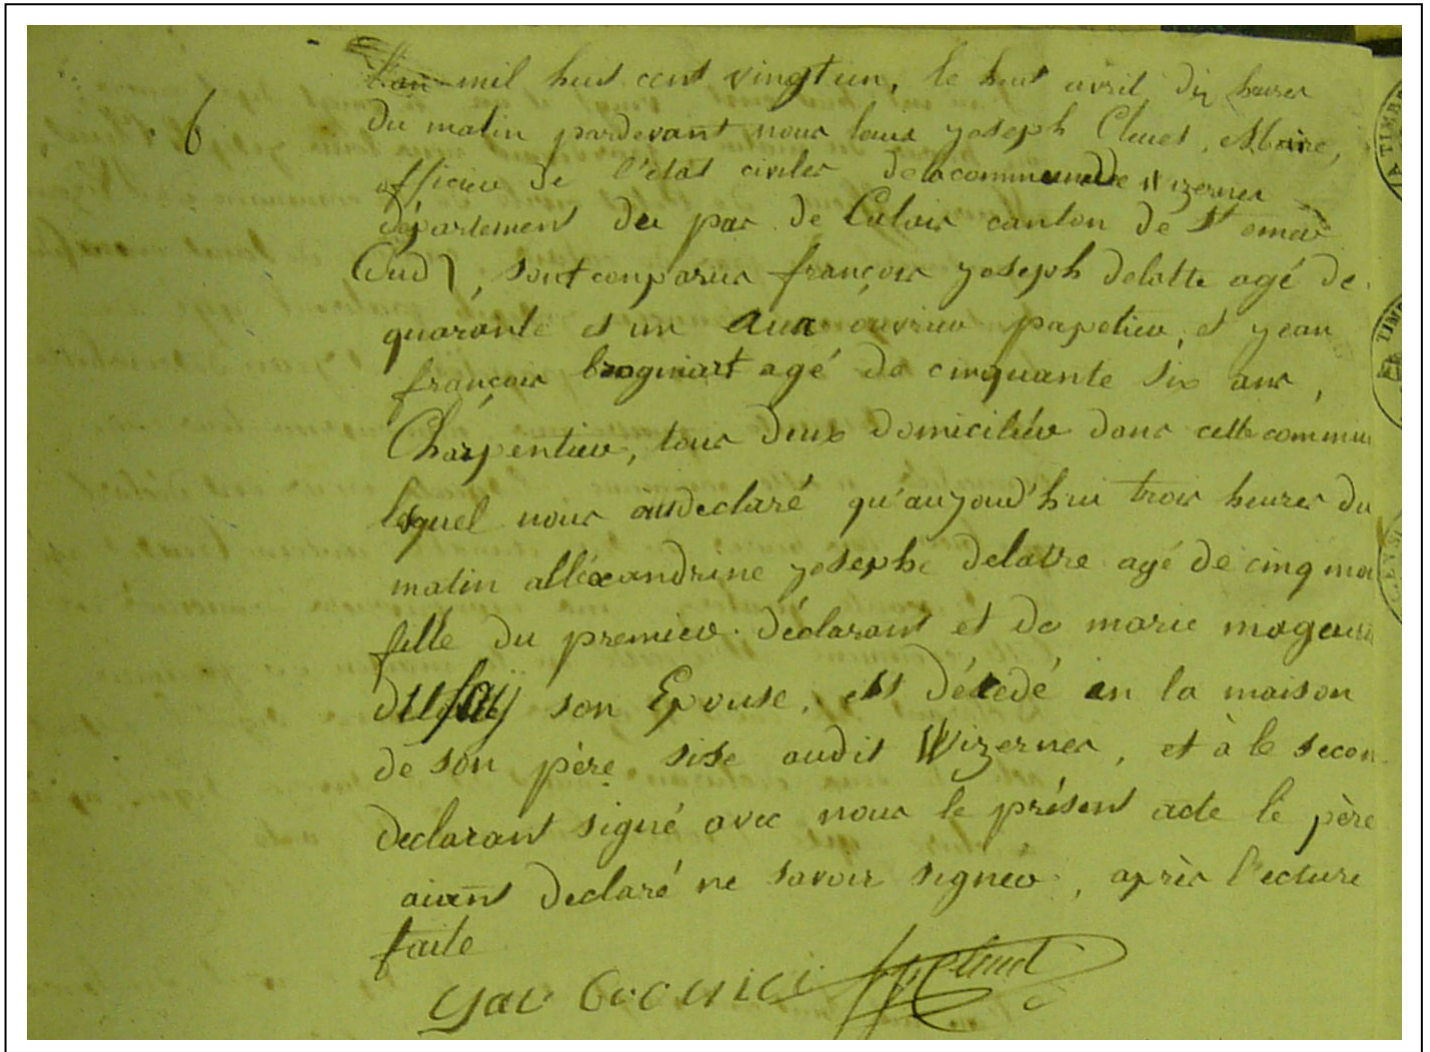 6
L'an mil huit cent vingt un, le huit avril dix heures
du matin pardevant nous louis yoseph Cluet, Maire,
officier de l'état civiles delacommunedde Wizernes
département du pas de Calais canton de St omer
(Sud), sont conparus françois yoseph delattre agé de
quarante et un ans ouvrier papetier, et yean
françois brogniart agé de cinquante six ans,
Charpentier, tous deux domiciliés dans cette commu
lesquel nous ont declaré qu'auyoud'hui trois heures du
matin alléxandrine yosephe delatre agé de cinq moi
fille du premier déclarant et de marie
dufay son Epouse, est décédé en la maison
de son père sise audit Wizernes, et à le secon
declarant signé avec nous le présent acte le père
aiant declaré ne savoir signer, après l'ecture
faite
Cluet
TIMBRE
TIMB